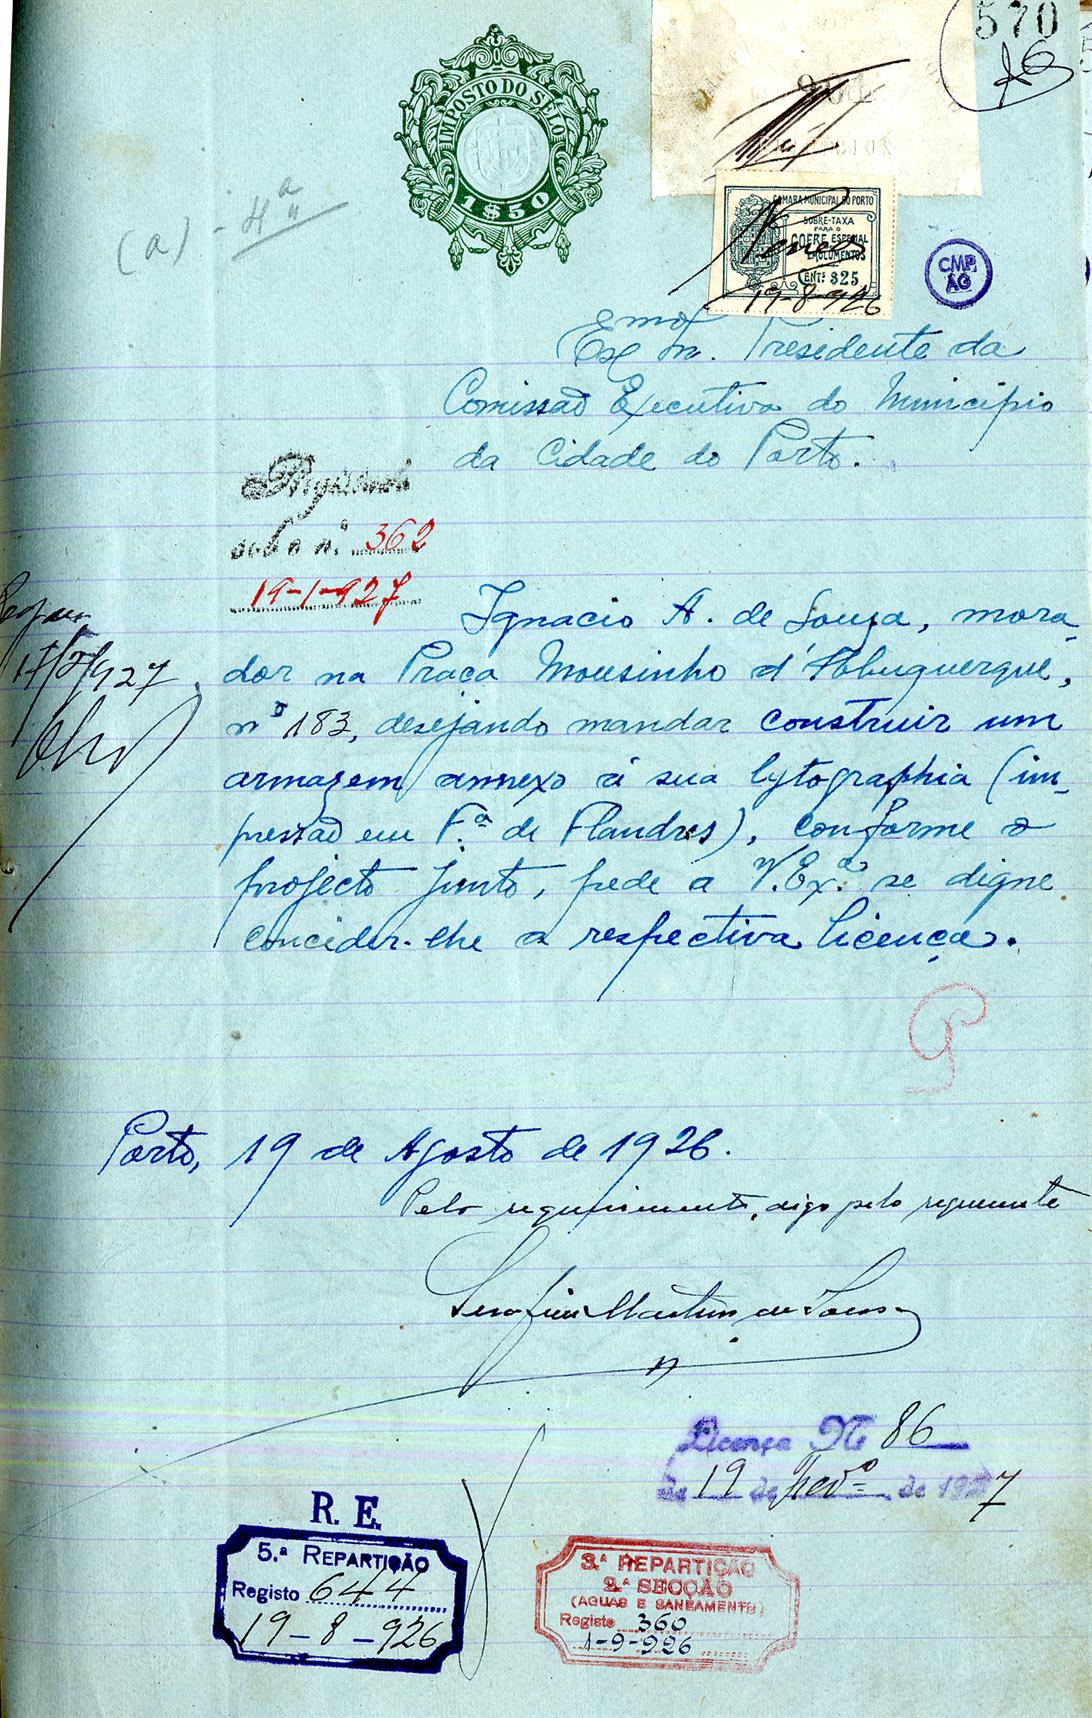 570
IMPOSTO DO SÊLO
1$50
(a) - 4ª
CAMARA MUNICIPAL DO PORTO
SOBRE-TAXA
PARA O
COFRE ESPECIAL
EMOLUMENTOS
CENT.s $25
19-8-926
CMP
AG
Exmo Snr. Presidente da
Comissão Executiva do Municipio
da Cidade do Porto.
Registado
sob o n.º 362
19-1-927
17/2/927
Ignacio A. de Souza, mora-
dor na Praça Mousinho d'Albuquerque,
nº 183, desejando mandar construir um
armazem annexo á sua lytographia (im-
pressão em F.ª de Flandres), conforme o
projecto junto, pede a V. Ex.ª se digne
conceder-lhe a respectiva licença.
Porto, 19 de Agosto de 1926.
Pelo requerimento, digo pelo requerente
Serafim Martins de Sousa
Licença Nº 86
de 19 de Fevº de 1927
R. E.
5.ª REPARTIÇÃO
Registo 644
19-8-926
3.ª REPARTIÇÃO
2.ª SECÇÃO
(AGUAS E SANEAMENTO)
Registo 360
1-9-926